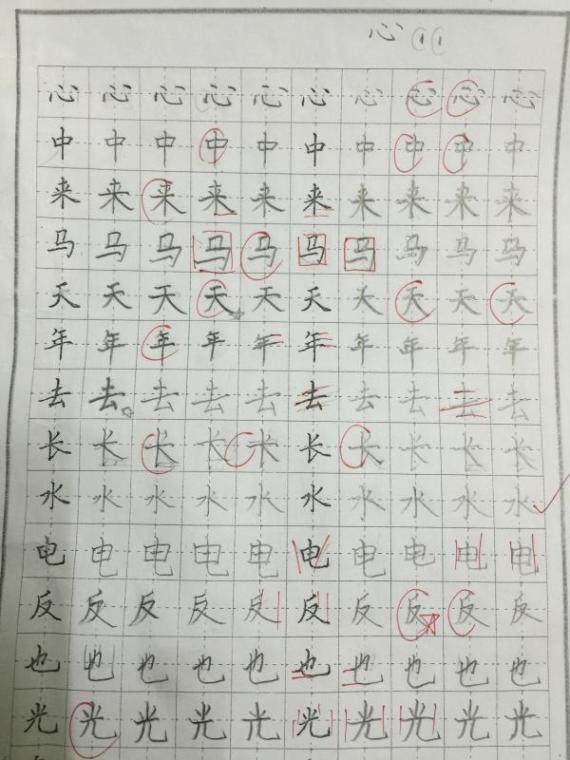 心
心 心 心 心 心 心 心 心 心 心
中 中 中 中 中 中 中 中 中 中
来 来 来 来 来 来 来 来 来 来
马 马 马 马 马 马 马 马 马 马
天 天 天 天 天 天 天 天 天 天
年 年 年 年 年 年 年 年 年 年
去 去 去 去 去 去 去 去 去 去
长 长 长 长 长 长 长 长 长 长
水 水 水 水 水 水 水 水 水 水
电 电 电 电 电 电 电 电 电 电
反 反 反 反 反 反 反 反 反 反
也 也 也 也 也 也 也 也 也 也
光 光 光 光 光 光 光 光 光 光